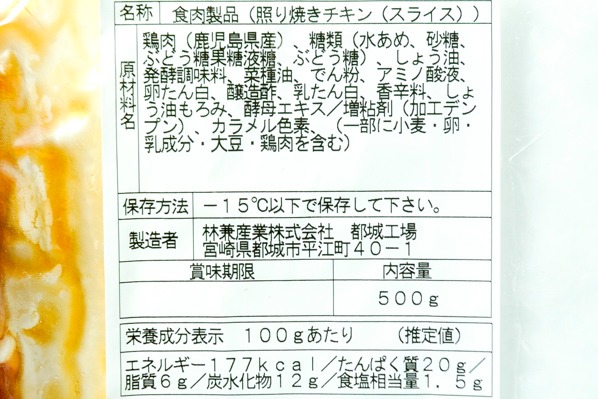 名称 食肉製品（照り焼きチキン（スライス））
原材料名
鶏肉（鹿児島県産）、糖類（水あめ、砂糖、
ぶどう糖果糖液糖、ぶどう糖）、しょう油、
発酵調味料、菜種油、でん粉、アミノ酸液、
卵たん白、醸造酢、乳たん白、香辛料、しょ
う油もろみ、酵母エキス／増粘剤（加工デン
プン）、カラメル色素、（一部に小麦・卵・
乳成分・大豆・鶏肉を含む）
保存方法 －１５℃以下で保存して下さい。
製造者 林兼産業株式会社　都城工場
宮崎県都城市平江町４０－１
賞味期限 内容量
５００ｇ
栄養成分表示　１００ｇあたり　（推定値）
エネルギー１７７ｋｃａｌ／たんぱく質２０ｇ／
脂質６ｇ／炭水化物１２ｇ／食塩相当量１．５ｇ